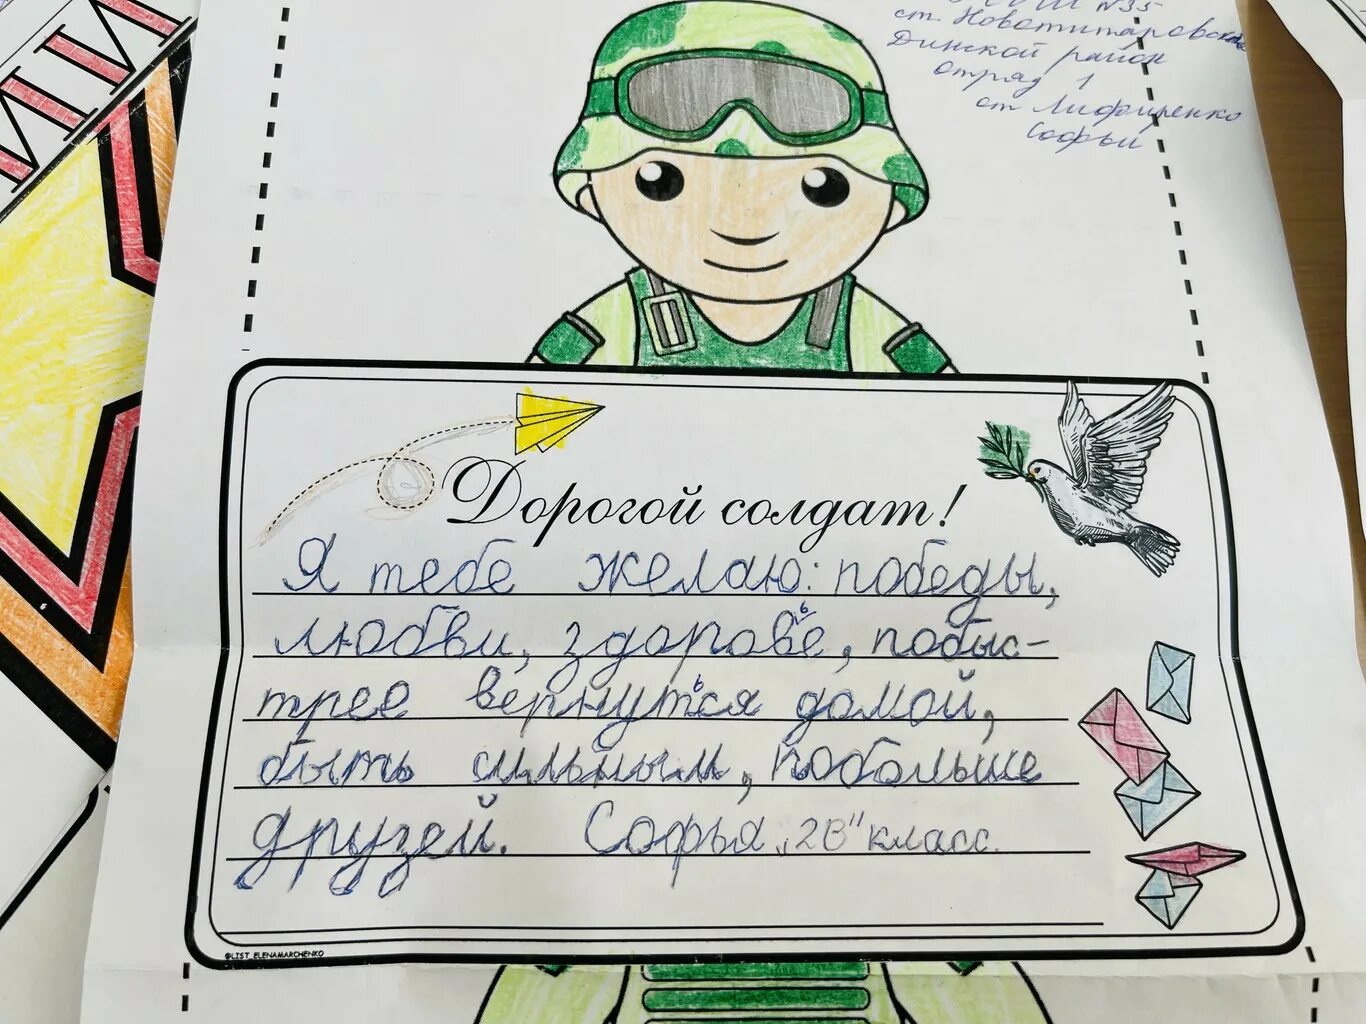 ИИ
№35
ст. Новотитаровская
Динской район
отряд 1
от Лифиренко
Софьи
Дорогой солдат!
Я тебе желаю: победы,
любви, здоровье, побыс-
трее вернуться домой,
быть сильным, побольше
друзей. Софья „2В" класс.
@LIST_ELENAMARCHENKO